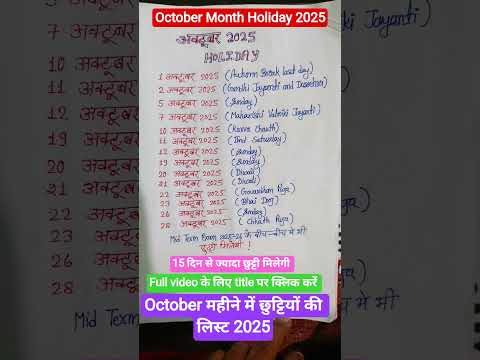 October Month Holiday 2025
अक्टूबर 2025
HOLIDAY
1 अक्टूबर 2025 (Autumn Break last day)
2 अक्टूबर 2025 (Gandhi Jayanti and Dussehra)
5 अक्टूबर 2025 (Sunday)
7 अक्टूबर 2025 (Maharishi Valmiki Jayanti)
10 अक्टूबर 2025 (Karva Chauth)
11 अक्टूबर 2025 (IInd Saturday)
12 अक्टूबर 2025 (Sunday)
19 अक्टूबर 2025 (Sunday)
20 अक्टूबर 2025 (Diwali)
21 अक्टूबर 2025 (Diwali)
22 अक्टूबर 2025 (Govardhan Puja)
23 अक्टूबर 2025 (Bhai Dooj)
26 अक्टूबर 2025 (Sunday)
28 अक्टूबर 2025 (Chhath Puja)
Mid Term Exam 2025-26 के बीच-बीच में भी
छुट्टी मिलेगी !
15 दिन से ज्यादा छुट्टी मिलेगी
Full video के लिए title पर क्लिक करें
October महीने में छुट्टियों की
लिस्ट 2025